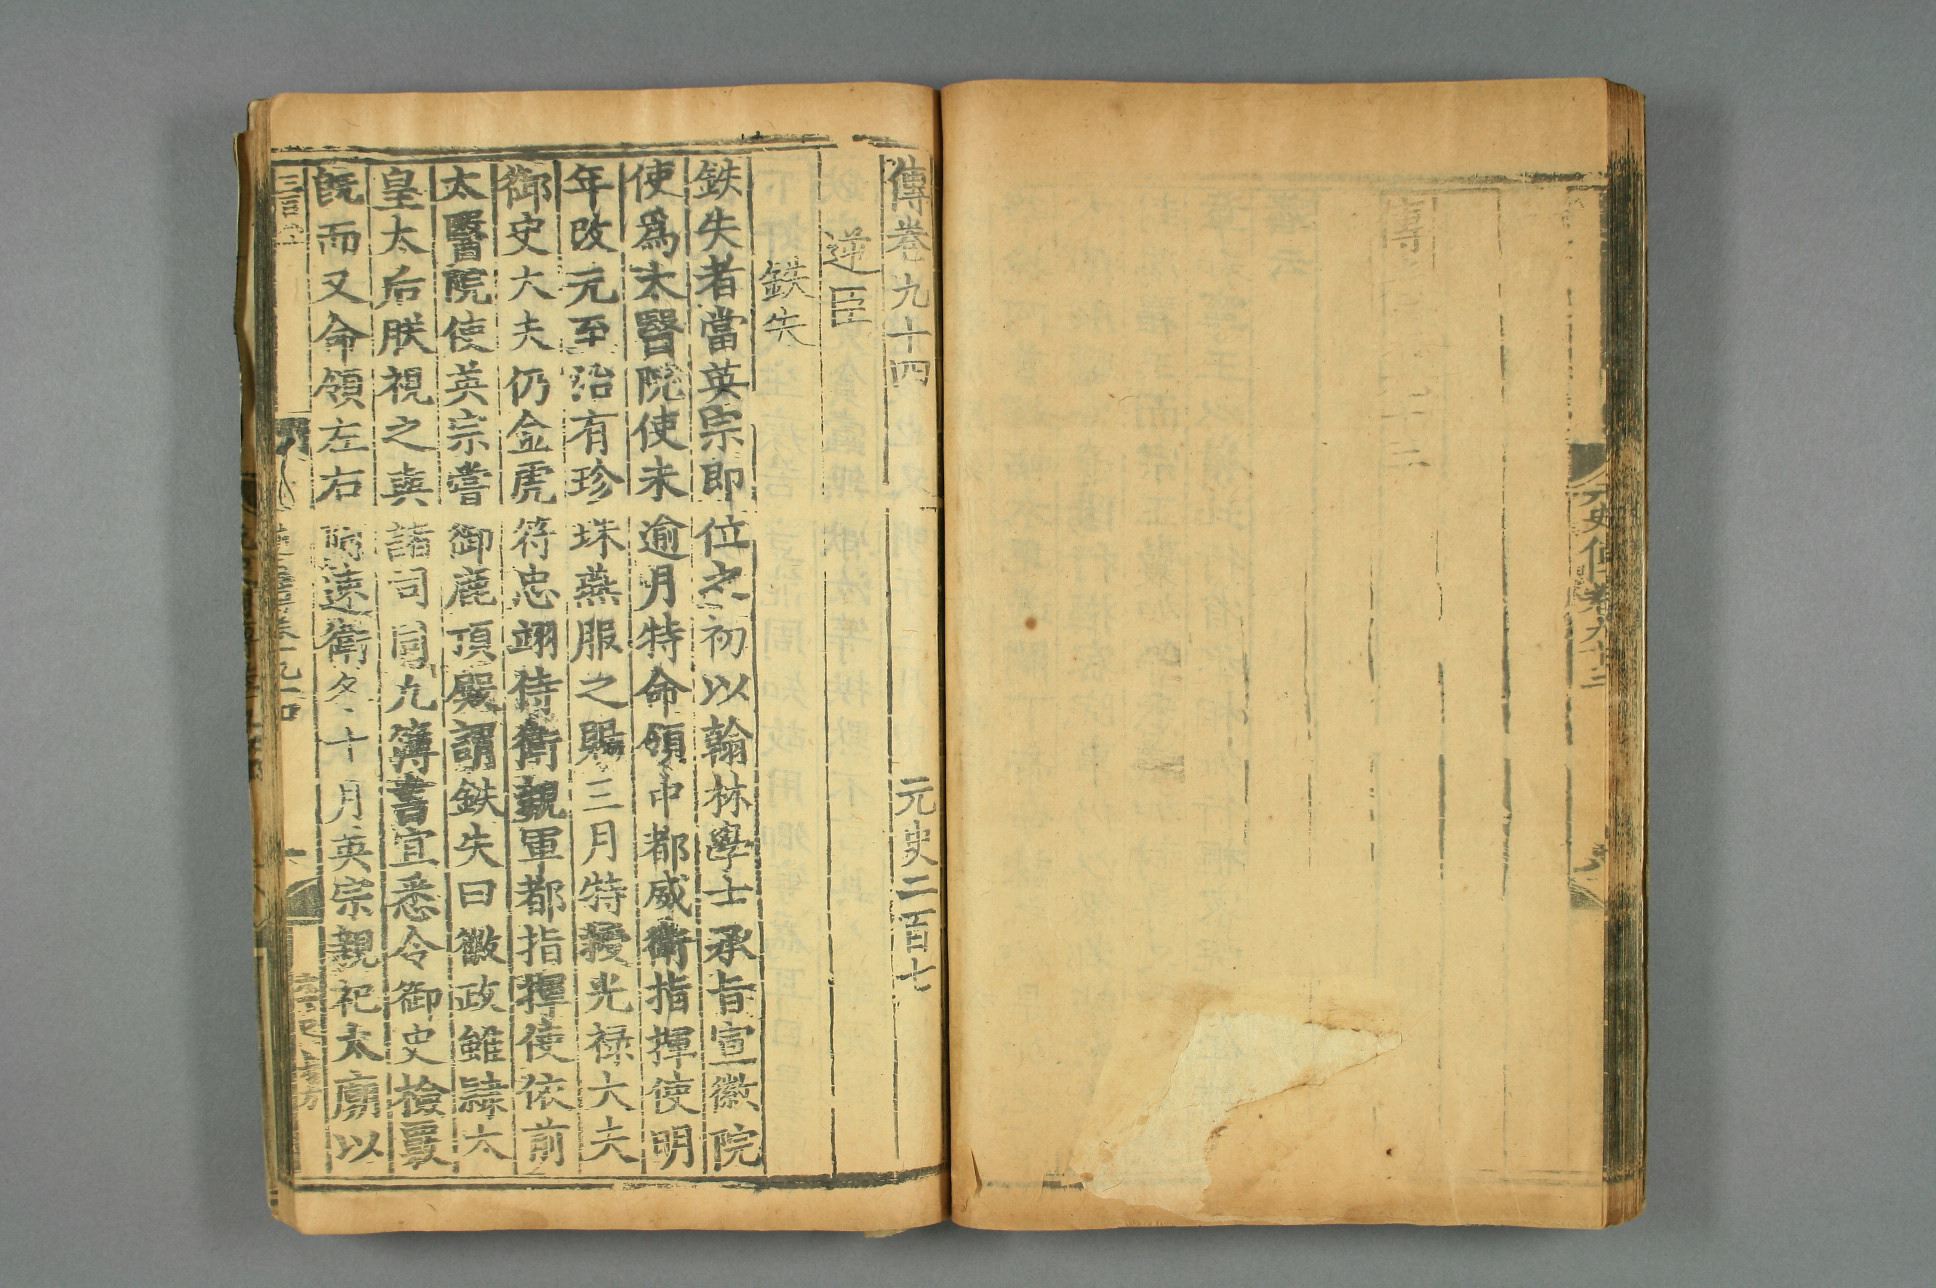 傳卷九十三
傳卷九十四 元史二百七
逆臣
鉄失
鉄失者當英宗即位之初以翰林學士承旨宣徽院
使爲太醫院使未逾月特命領中都威衛指揮使明
年改元至治有珍珠燕服之賜三月特授光禄大夫
御史大夫仍金虎符忠翊侍衛親軍都指揮使依前
太醫院使英宗嘗御鹿頂殿謂鉄失曰徽政雖隷太
皇太后朕視之與諸司同凡簿書宜悉令御史檢覈
既而又命領左右阿速衛冬十月英宗親祀太廟以